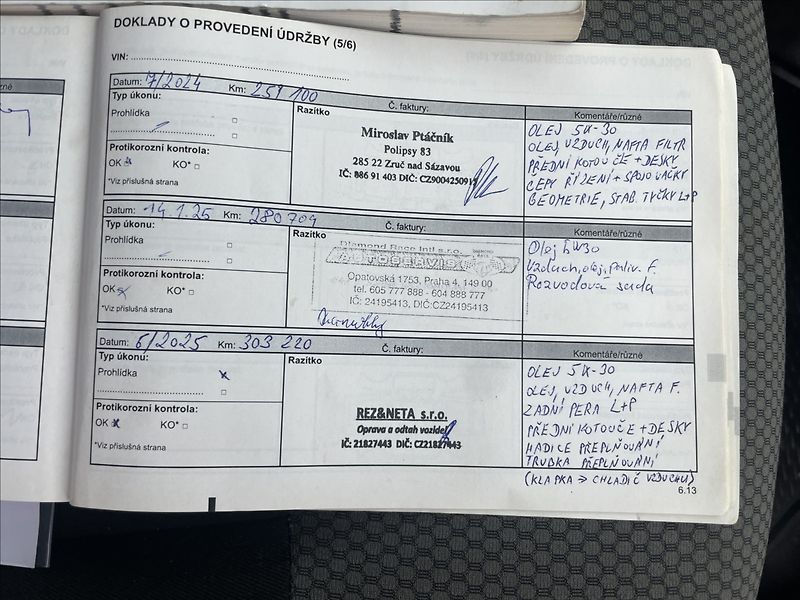 DOKLADY O PROVEDENÍ ÚDRŽBY (5/6)
VIN:
Datum: 7/2024 Km: 251 100
Č. faktury:
Typ úkonu:
Razítko
Komentáře/různé
Prohlídka
Protikorozní kontrola:
OK KO*
*Viz příslušná strana
Miroslav Ptáčník
Polipsy 83
285 22 Zruč nad Sázavou
IČ: 886 91 403 DIČ: CZ9004250912
OLEJ 5W-30
OLEJ, VZDUCH, NAFTA FILTR
PŘEDNÍ KOTOUČE + DESKY
ČEPY ŘÍZENÍ + SPOJOVAČKY
GEOMETRIE, STAB. TYČKY L+P
Datum: 14.1.25 Km: 280704
Č. faktury:
Typ úkonu:
Razítko
Komentáře/různé
Prohlídka
Protikorozní kontrola:
OK KO*
*Viz příslušná strana
Diamond Race Intl s.r.o.
AUTOSERVIS
Opatovská 1753, Praha 4, 149 00
tel. 605 777 888 - 604 888 777
IČ: 24195413, DIČ:CZ24195413
Olej 5W30
Vzduch, olej, paliv. F.
Rozvodová sada
Datum: 6/2025 Km: 303 220
Č. faktury:
Typ úkonu:
Razítko
Komentáře/různé
Prohlídka
Protikorozní kontrola:
OK KO*
*Viz příslušná strana
REZ&NETA s.r.o.
Oprava a odtah vozidel
IČ: 21827443 DIČ: CZ21827443
OLEJ 5W-30
OLEJ, VZDUCH, NAFTA F.
ZADNÍ PERA L+P
PŘEDNÍ KOTOUČE + DESKY
HADICE PŘEPLŇOVÁNÍ
TRUBKA PŘEPLŇOVÁNÍ
(KLAPKA → CHLADIČ VZDUCHU)
6.13